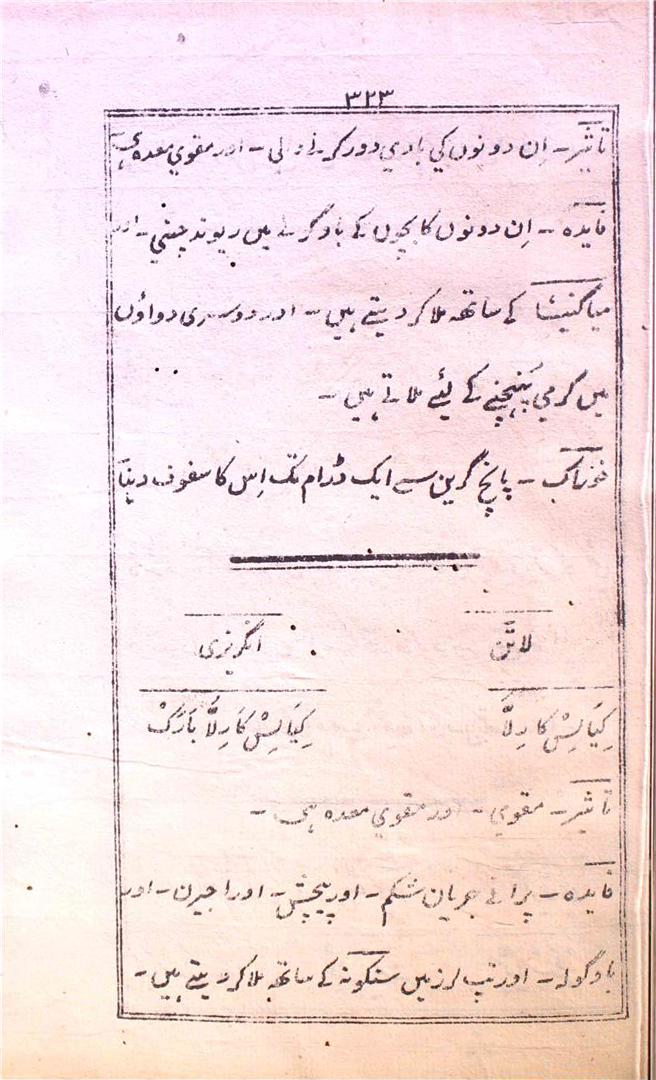 ۳۲۳
تاثیر۔ اِن دونوں کی بادي دور کرنے والی۔ اور مقوي معدہ ہی
فایدہ۔ اِن دونوں کا بچوں کے باوگولے میں ریوند چینی۔ اور
میاگنیشا کے ساتھ ملا کر دیتے ہیں۔ اور دوسری دواؤں
میں گرمي پَہنچنے کے لیٔے ملاتے ہیں۔
خوراک۔ پانچ گرین سے ایک ڈرام تک اِس کا سفوف دینا
لاتَن
انگریزی
کِیَاسِْکَارِلَّا
کِیَاسِْکَارِلَّا بَارَک
تاثیر۔ مقوي۔ اور مقوي معدہ ہی۔
فایدہ۔ پرانے جریان شکم۔ اور پیچش۔ اور اجیرن۔ اور
باوگولہ۔ اور تپ لرز میں سنکونہ کے ساتھ ملا کر دیتے ہیں۔